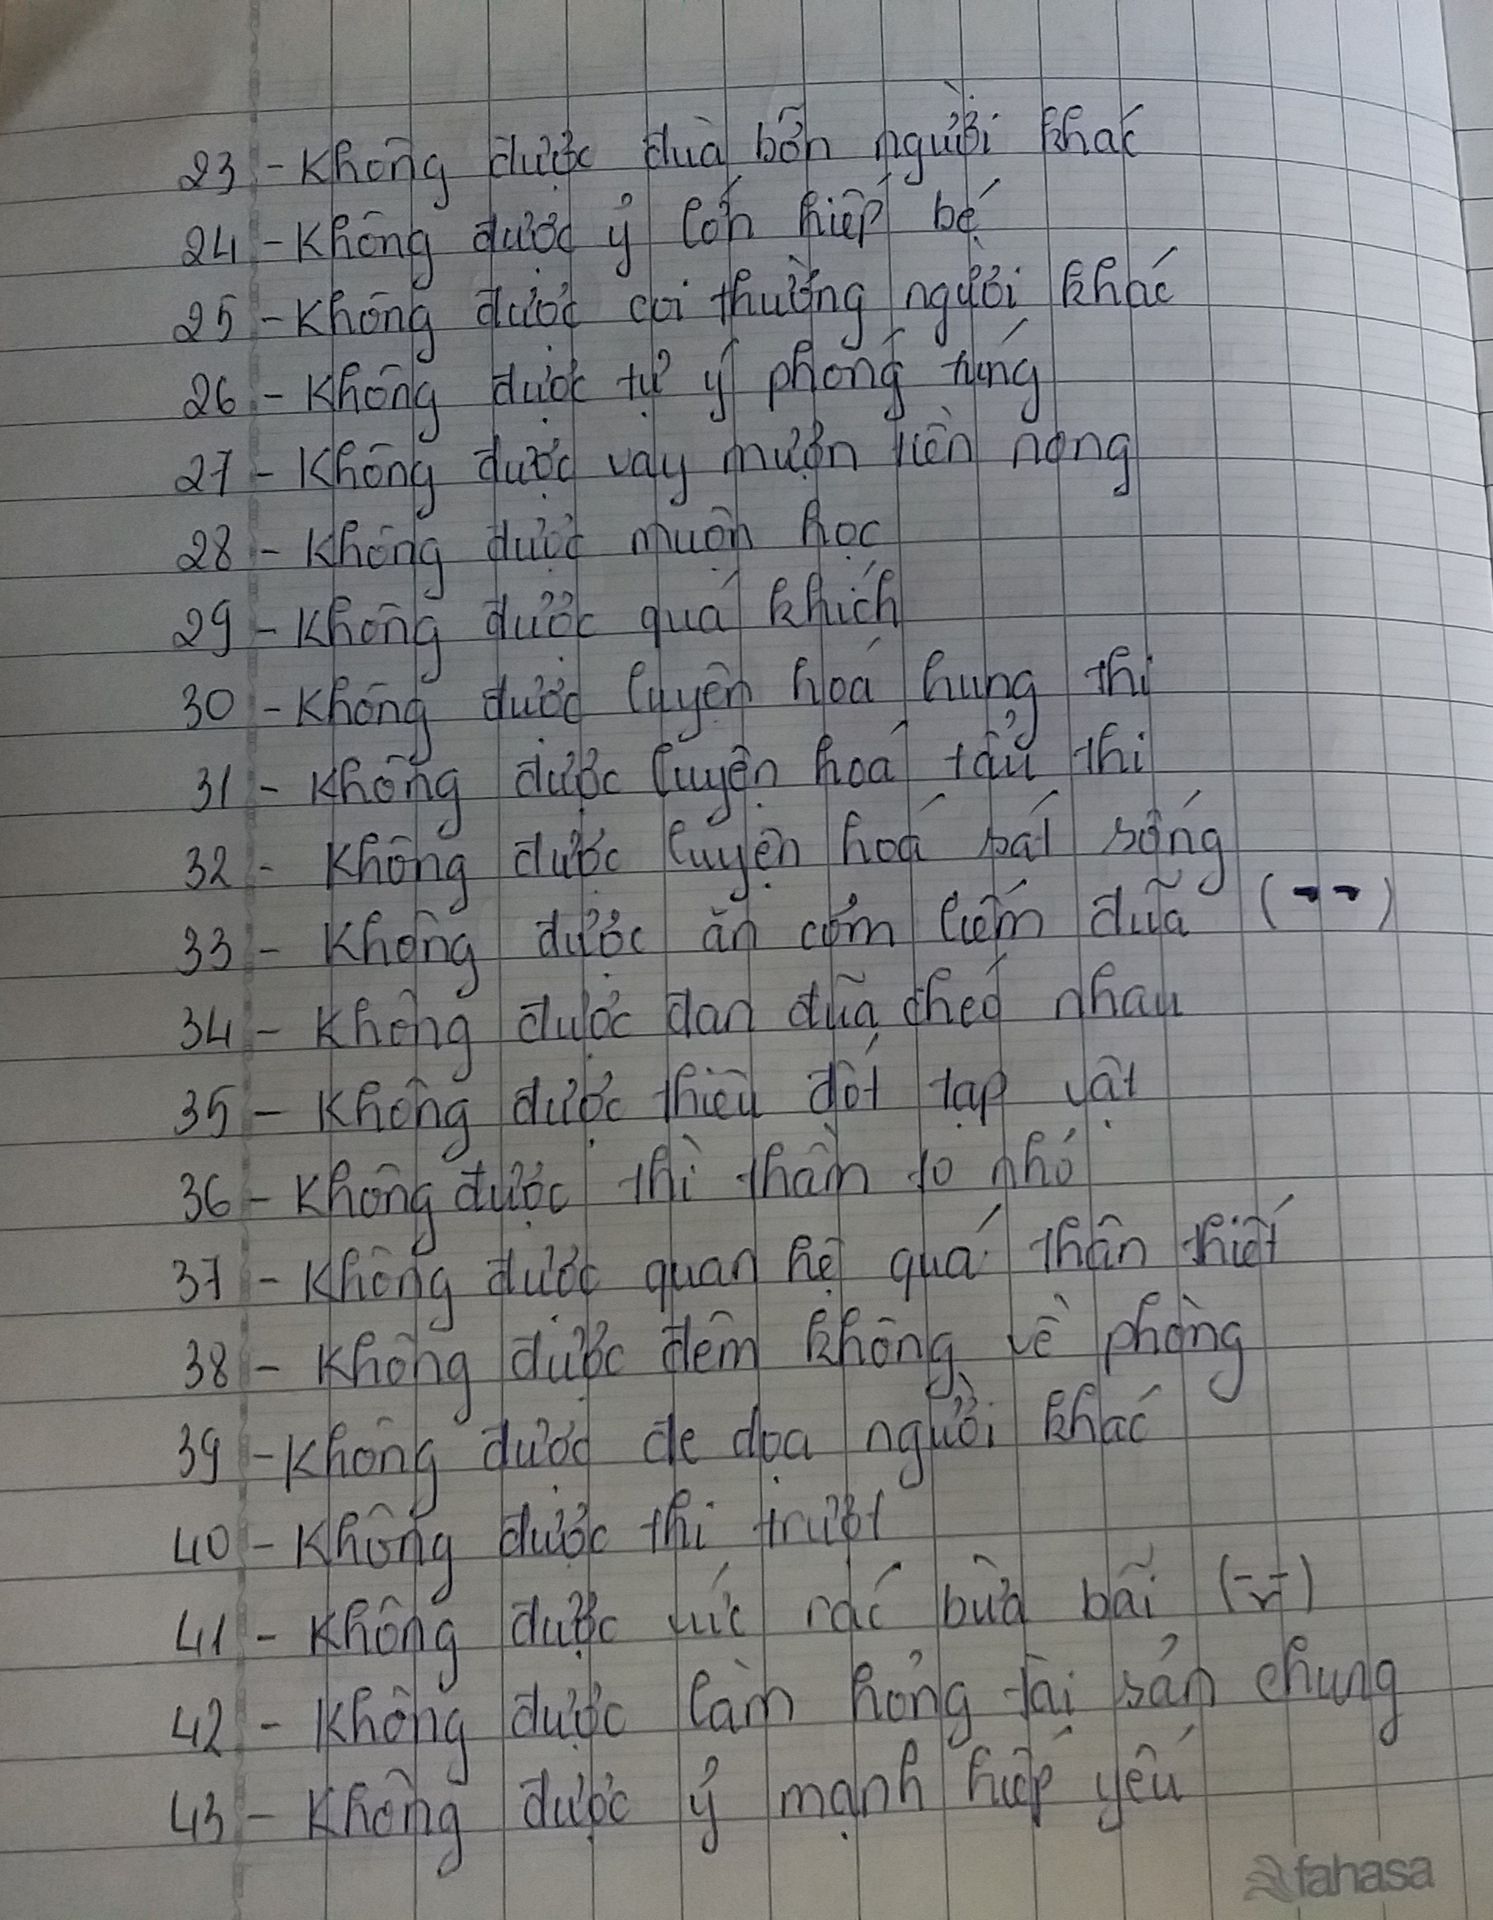 23 - Không được đùa bỡn người khác
24 - Không được ỷ lớn hiếp bé
25 - Không được coi thường người khác
26 - Không được tự ý phóng túng
27 - Không được vay mượn tiền nong
28 - Không được muộn học
29 - Không được quá khích
30 - Không được luyện hoá hung thi
31 - Không được luyện hoá tẩu thi
32 - Không được luyện hoá bát sống
33 - Không được ăn cơm liếm đũa (--)
34 - Không được đan đũa chéo nhau
35 - Không được thiêu đốt tạp vật
36 - Không được thì thầm to nhỏ
37 - Không được quan hệ quá thân thiết
38 - Không được đêm không về phòng
39 - Không được đe doạ người khác
40 - Không được thi trượt
41 - Không được vứt rác bừa bãi (-v-)
42 - Không được làm hỏng tài sản chung
43 - Không được ỷ mạnh hiếp yếu
fahasa